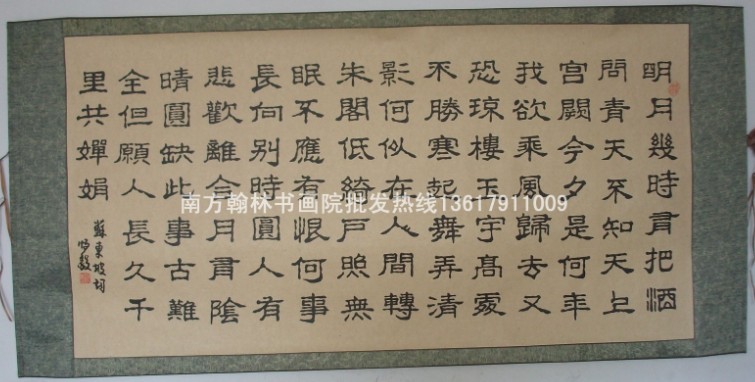 明月幾時有把酒
問青天不知天上
宮闕今夕是何年
我欲乘風歸去又
恐琼樓玉宇高處
不勝寒起舞弄清
影何似在人間轉
朱閣低綺戶照無
眠不應有恨何事
長向別時圓人有
悲歡離合月有陰
晴圓缺此事古難
全但願人長久千
里共嬋娟
蘇東坡詞
南方翰林书画院批发热线13617911009